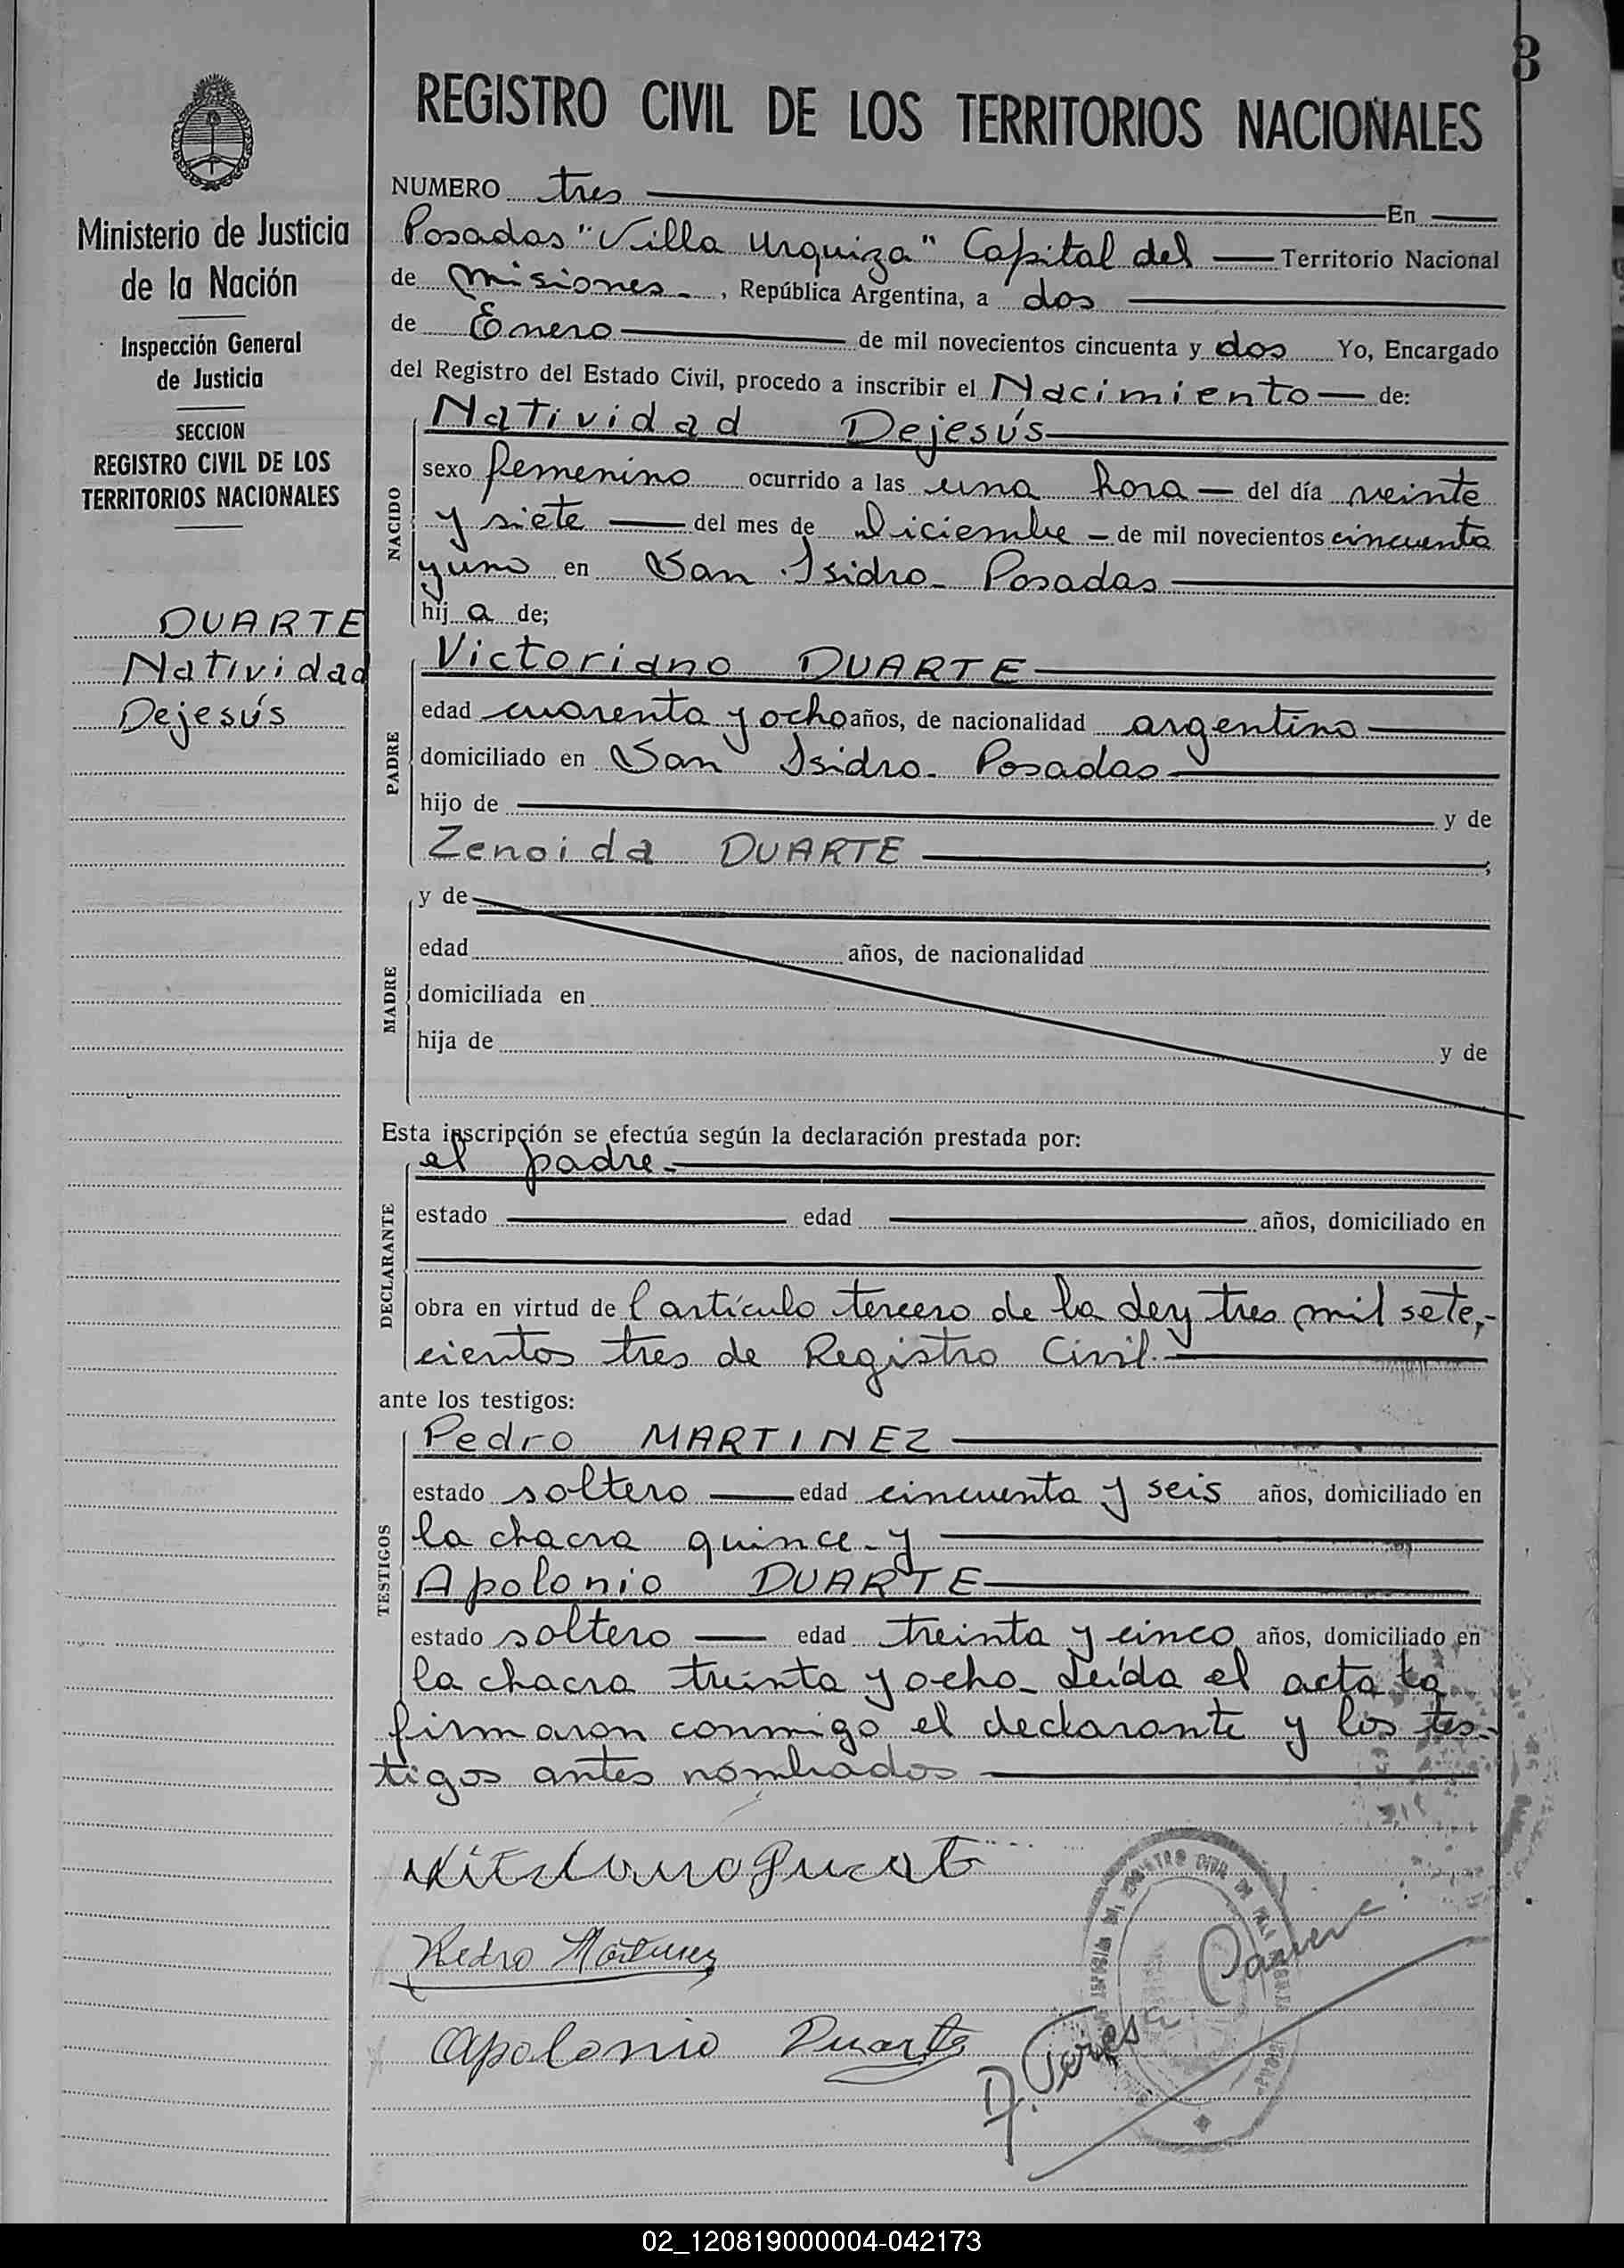 3
REGISTRO CIVIL DE LOS TERRITORIOS NACIONALES
Ministerio de Justicia
de la Nación
Inspección General
de Justicia
SECCION
REGISTRO CIVIL DE LOS
TERRITORIOS NACIONALES
DUARTE
Natividad
Dejesús
NUMERO tres En
Posadas "Villa Urquiza" Capital del Territorio Nacional
de Misiones, República Argentina, a dos
de Enero de mil novecientos cincuenta y dos Yo, Encargado
del Registro del Estado Civil, procedo a inscribir el Nacimiento de:
NACIDO
Natividad Dejesús
sexo femenino ocurrido a las una hora del día veinte
y siete del mes de Diciembre de mil novecientos cincuenta
y uno en San Isidro - Posadas
hij a de;
PADRE
Victoriano DUARTE
edad cuarenta y ocho años, de nacionalidad argentino
domiciliado en San Isidro - Posadas
hijo de y de
Zenoida DUARTE ;
MADRE
y de
edad años, de nacionalidad
domiciliada en
hija de y de
Esta inscripción se efectúa según la declaración prestada por:
DECLARANTE
el padre.
estado edad años, domiciliado en
obra en virtud de l artículo tercero de la Ley tres mil sete,-
cientos tres de Registro Civil.
ante los testigos:
TESTIGOS
Pedro MARTINEZ
estado soltero edad cincuenta y seis años, domiciliado en
la chacra quince - y
Apolonio DUARTE
estado soltero edad treinta y cinco años, domiciliado en
la chacra treinta y ocho - Leída el acta la
firmaron conmigo el declarante y los tes-
tigos antes nombrados
Pedro Martinez
Apolonio Duarte
D. Teresa
02_120819000004-042173